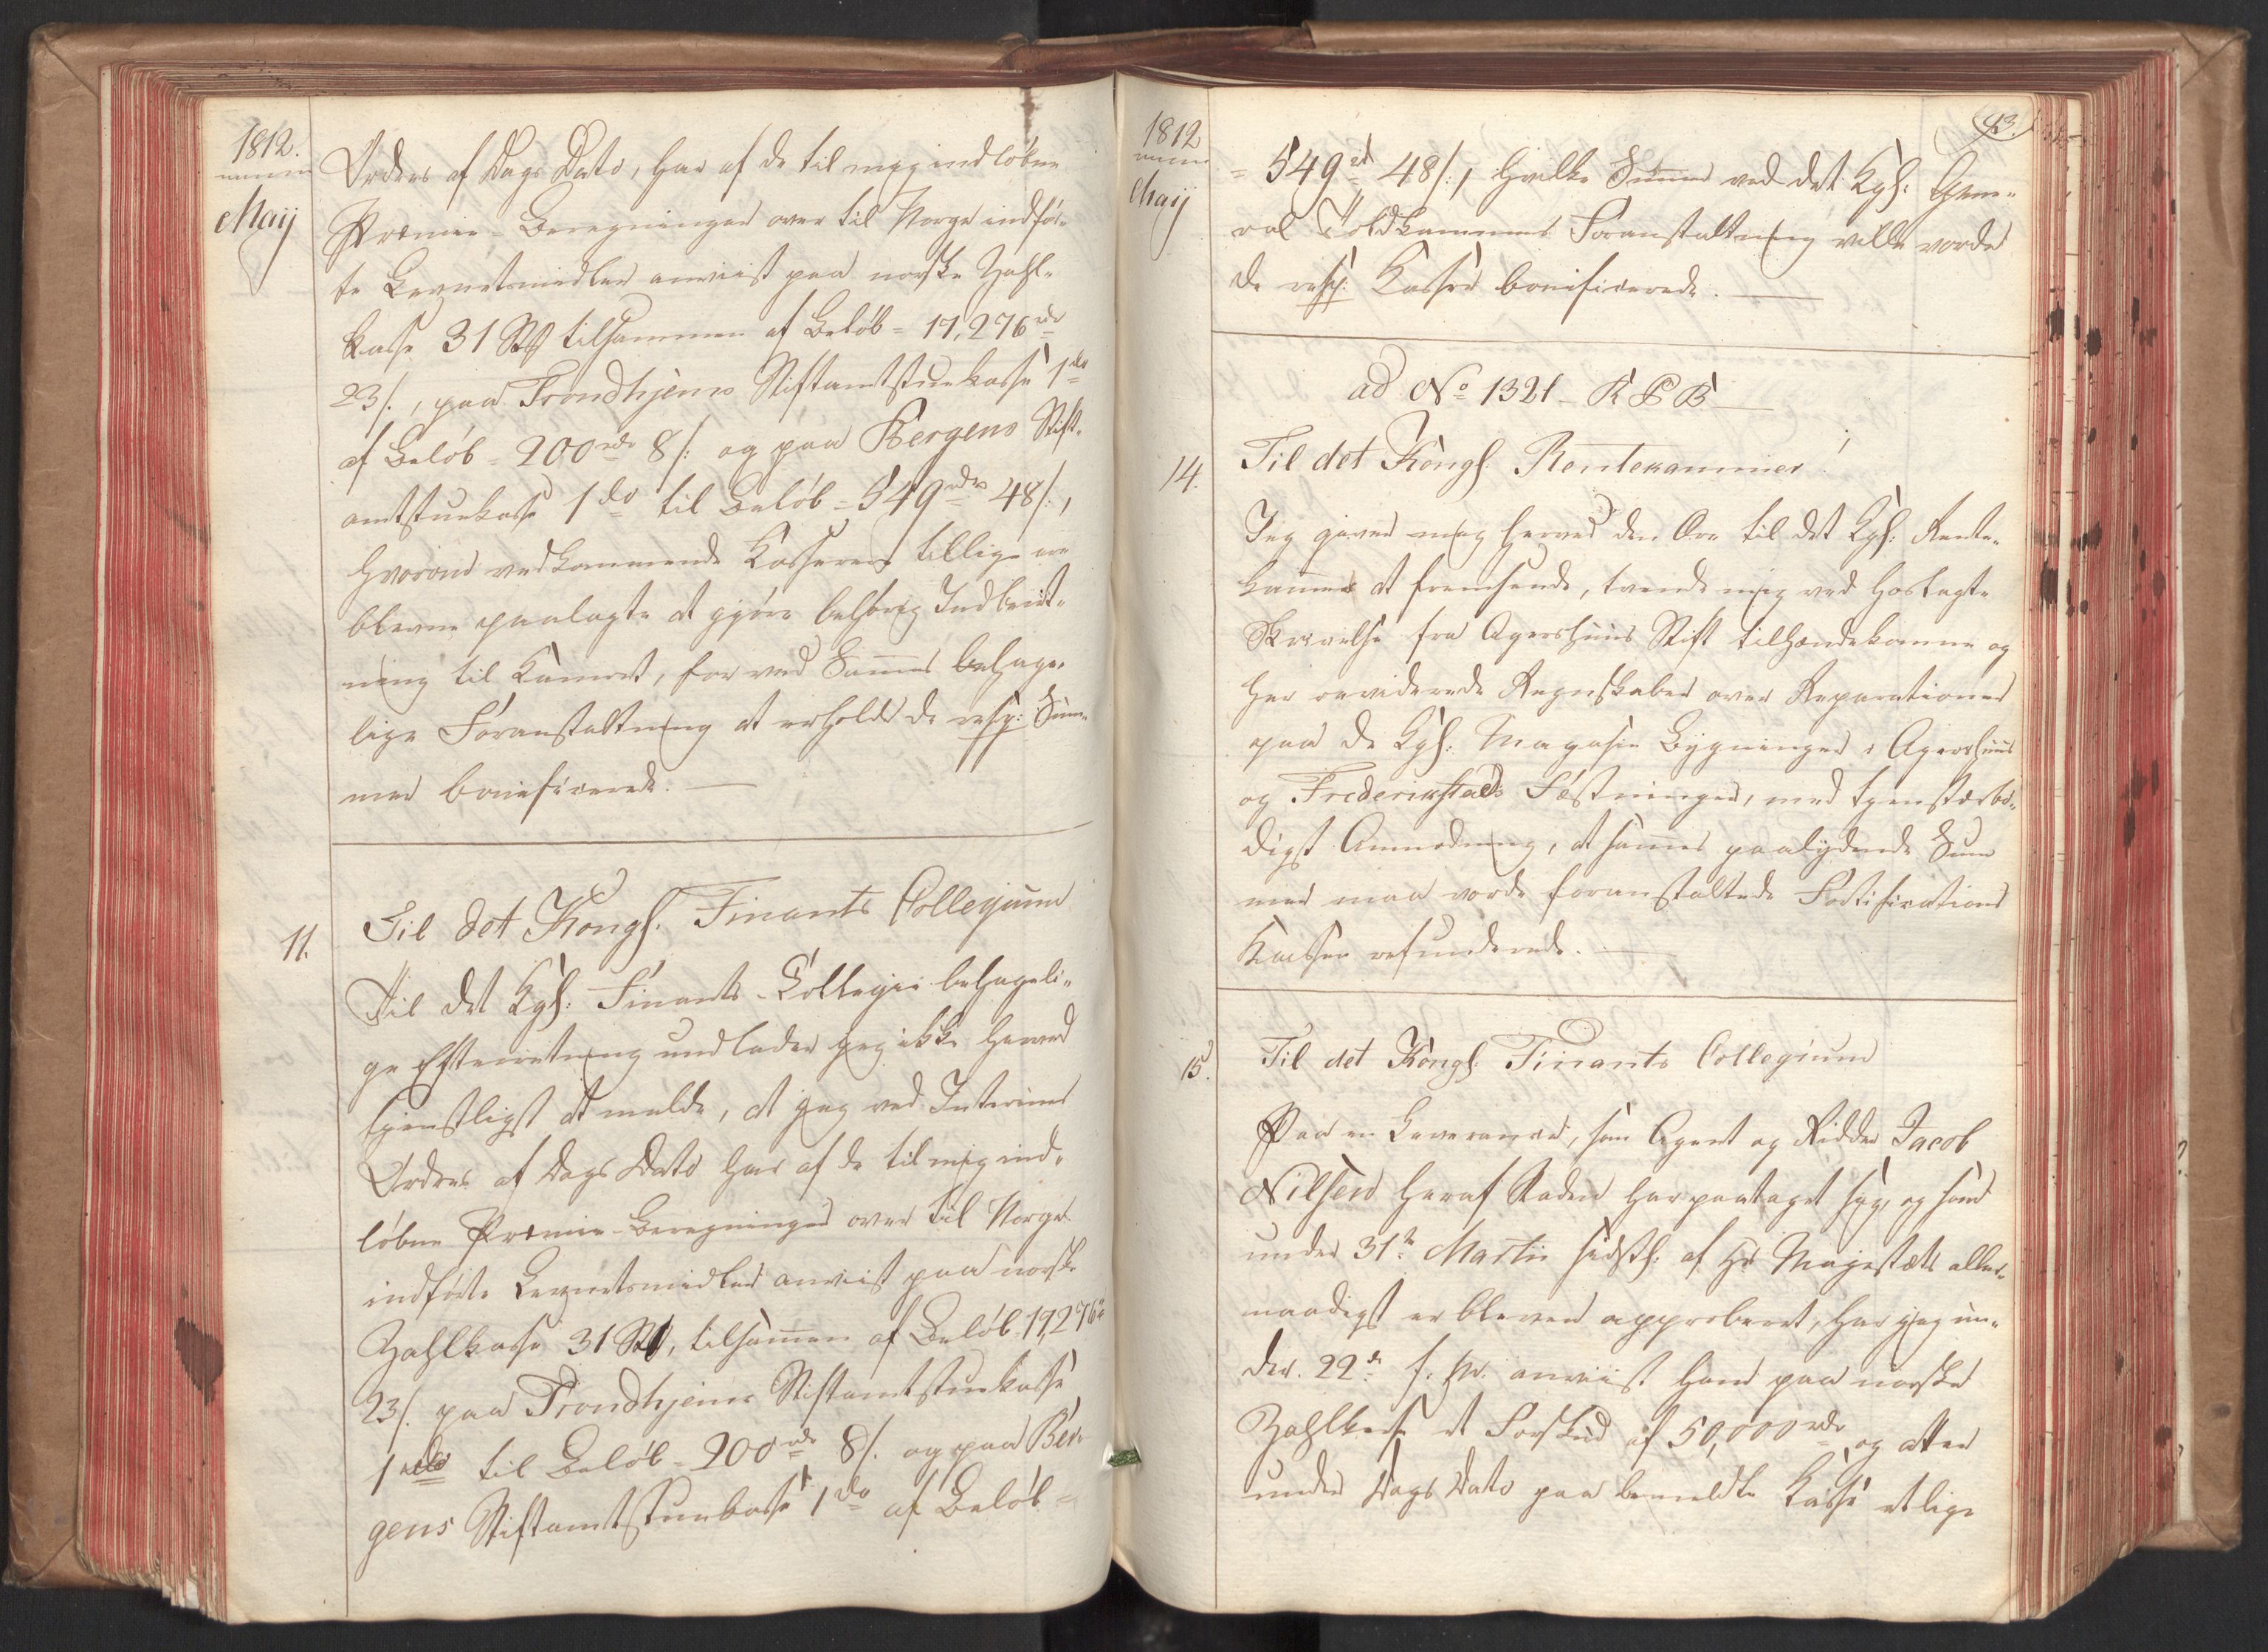 1812.
Maij
Ordres af Dags Dato, har af de til mig indløbne
Præmie-Beregninger over til Norge indfør-
te Levnetsmidler anviist paa norske Zahl-
kasse 31 St tilsammen af Beløb = 17,276 rdr
23 s., paa Trondhjems Stiftamtstuekasse 1 do
af Beløb = 200 rdr 8 s: og paa Bergens Stift-
amtstuekasse 1 do til Beløb = 549 rdr 48 s:,
hvorom vedkommende Kasserere tillige ere
blevne paalagte at gjøre behørig Indberet-
ning til Kamret, for ved Sammes behage-
lige Foranstaltning at erholde de resp: Sum-
mer bonificerede.
11.
Til det Kongl. Finants Collegium
Til det Kgl: Finants-Collegii behageli-
ge Efterretning undlader jeg ikke herved
tjenstligst at melde, at jeg ved Interims
Ordres af Dags Dato har af de til mig ind-
løbne Præmie-Beregninger over til Norge
indførte Levnetsmidler anviist paa norske
Zahlkasse 31 St, tilsammen af Beløb 17,276
23 s. paa Trondhjems Stiftamtstuekasse
1 do til Beløb = 200 rdr 8 s. og paa Ber-
gens Stiftamtstuekasse 1 do af Beløb =
1812
Maij
43.
= 549 rd 48 s:, hvilke Summer ved det Kgl: Gene-
ral Toldkammers Foranstaltning ville vorde
de resp: Kasser bonificerede.
ad No 1321 - R P B
14.
Til det Kongl. Rentekammer!
Jeg giver mig herved den Ære til det Kgl: Rente-
kammer at fremsende, tvende mig ved hoslagte
Skrivelse fra Agershuus Stift tilhændekomne og
her reviderede Regnskaber over Reparationer
paa de Kgl: Magasin Bygninger i Agershuus
og Frederikstads Fæstninger, med tjenstærbø-
digst Anmodning, at sammes paalydende Sum
mer maa vorde foranstaltede Fortifications
Kassen refunderede.
15.
Til det Kongl. Finants Collegium
Paa en Leverance, som Agent og Ridder Jacob
Nilsen heraf Staden har paataget sig, og som
under 31te Martii sidstl: af Hs Majestæts aller-
naadigst er bleven approberet, har jeg un-
der 22de f. M. anviist ham paa norske
Zahlkasse et Forskud af 50,000 rdr og atter
under Dags Dato paa bemeldte Kasse et lige